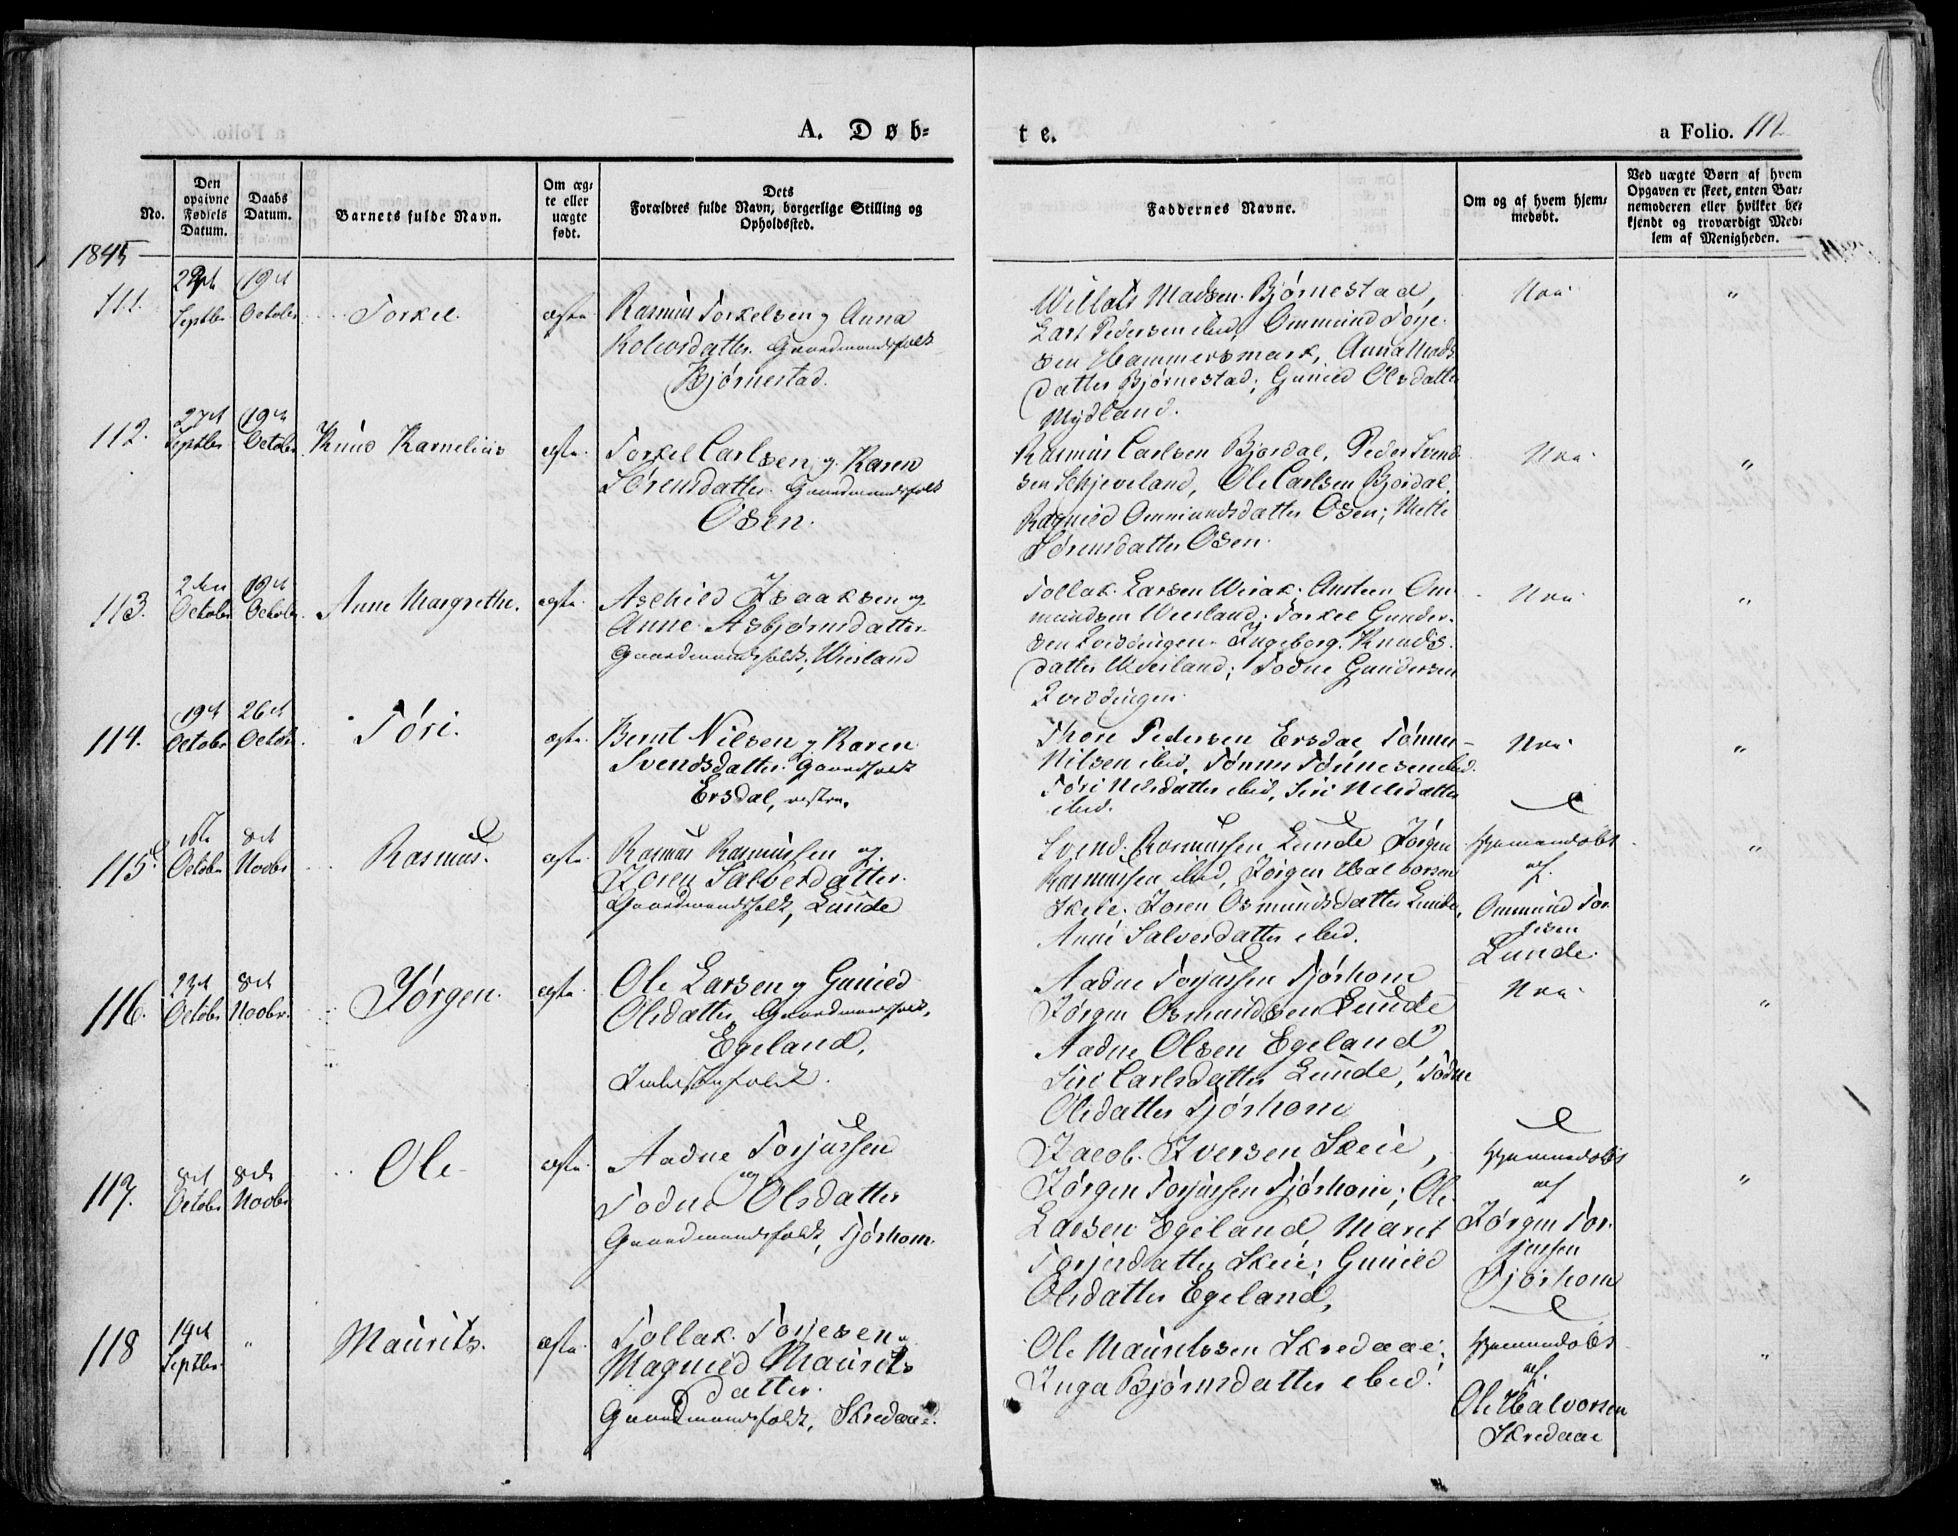 A. Døb=
te.
a Folio. 112
No.
Den opgivne Fødsels Datum.
Daabs Datum.
Barnets fulde Navn.
Om æg= te eller uægte født.
Dets Forældres fulde Navn, borgerlige Stilling og Opholdssted.
Faddernes Navne.
Om og af hvem hjem= medøbt.
Ved uægte Børn af hvem Opgaven er skeet, enten Bar= nemoderen eller hvilket be= kjendt og troværdigt Med= lem af Menigheden.
1845
111.
Septbr
19de
October
Torkel.
ægte.
Rasmus Torkelsen og Anna
Gaardmandsfolk
Bjørnestad.
Madsen Bjørnestad,
Lars Pedersen ibid, Ommund Torje=
sen Hammersmark, Anna Mads
datter Bjørnestad; Gunild Olsdatter
Mydland.
Nei
"
112.
27de
Septbr
19de
October
Knud Kornelius
ægte.
Torkel Carlsen og Karen
Sørensdatter. Gaardmandsfolk
Osen.
Rasmus Carlsen Bjordal, Peder Svend
sen Schjeveland, Ole Carlsen Bjordal
Ragnild Ommundsdatter Osen; Mette
Sørensdatter Osen.
Nei
"
113.
2den
October
19de
October
Anne Margrethe.
ægte.
Askild Isaaksen og
Anne Asbjørnsdatter
Gaardmandsfolk, Wirland
Tollak Larsen Wirak; Om
mundsen Wirland; Torkel Gunder=
sen Qvidingen. Ingeborg Knuds
datter Wirland; Todne Gundersen
Qvidingen.
Nei
"
114.
19de
October
26de
October
Tøri.
ægte.
Bernt Nilsen og Karen
Svendsdatter. Gaardfolk
Ersdal, vestre.
Thore Pedersen Ersdal Tønnes
Nilsen ibid, Tønnes Tønnesen ibid.
Tøri Nilsdatter ibid, Siri Nilsdatter
ibid.
Nei
"
115.
October
8de
Novbr
Rasmus.
ægte.
Rasmus Rasmussen og
Joren Salvesdatter.
Gaardmandsfolk, Lunde
Svend Rasmussen Lunde Jørgen
Rasmussen ibid, Jørgen Halvorsen
Skeie. Joren Osmundsdatter Lunde,
Anne Salvesdatter ibid.
hjemmedøbt
af
Ommund Tor
jesen
Lunde.
"
116.
23de
Octobr
8de
Novbr.
Jørgen.
ægte.
Ole Larsen og Gunild
Olsdatter, Gaardmandsfolk,
Egeland.
Inderstsfolk.
Aadne Torjussen Tjørhom
Jørgen Osmundsen Lunde
Aadne Olsen Egeland
Siri Carlsdatter Lunde, Todne
Olsdatter Tjørhom
Nei
"
117.
8de
October
8de
Novbr
Ole
ægte.
Aadne Torjussen
og
Todne Olsdatter
Gaardmandsfolk, Tjørhom.
Jacob Iversen Skeie,
Jørgen Torjussen Tjørhom; Ole
Larsen Egeland, Maret
Torjesdatter Skeie; Gunild
Olsdatter Egeland,
hjemmedøbt
af
Jørgen Tor
jussen
Tjørhom
"
118
19de
Septbr.
"
Maurits.
ægte.
Tollak Torjesen og
Magnild Maurits
datter.
Gaardmandsfolk, Skredaae.
Ole Mauritssen Skredaae;
Inga Bjørnsdatter ibid.
hjemmedøbt
af
Ole Halvorsen
Skredaae
"